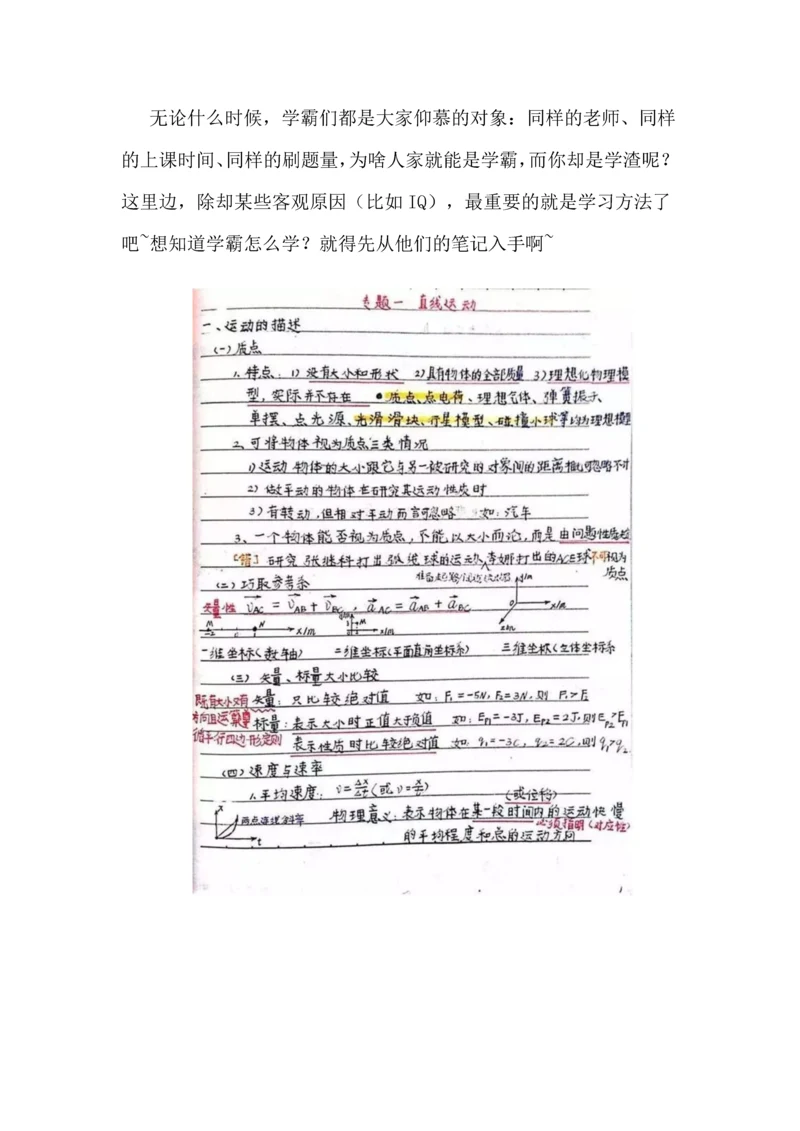 无论什么时候，学霸们都是大家仰慕的对象：同样的老师、同样
的上课时间、同样的刷题量，为啥人家就能是学霸，而你却是学渣呢？
这里边，除却某些客观原因（比如 IQ），最重要的就是学习方法了
吧~想知道学霸怎么学？就得先从他们的笔记入手啊~
专题一 直线运动
一、运动的描述
(一)质点
1. 特点：1) 没有大小和形状 2)具有物体的全部质量 3)理想化物理模
型，实际并不存在 ●质点、点电荷、理想气体、弹簧振子、
单摆、点光源、光滑滑块、行星模型、碰撞小球等均为理想模型
2、可将物体视为质点三类情况
1)运动物体的大小跟它与另一被研究的对象间的距离相比可忽略不计
2) 做平动的物体在研究其运动性质时
3) 有转动，但相对平动而言可忽略 如：汽车
3、一个物体能否视为质点，不能以大小而论，而是由问题性质
[错] 研究张继科打出弧线球的运动、李娜打出的ACE球不可视为
质点
(二)巧取参考系
y/m
矢量性 v_AC = v_AB + v_BC , a_AC = a_AB + a_BC
O x/m
z/m
M N x/m
M x/m
一维坐标(数轴) 二维坐标(平面直角坐标系) 三维坐标(立体坐标系
(三) 矢量、标量大小比较
既有大小又有 矢量：只比较绝对值 如：F₁=-5N, F₂=3N, 则 F₁>F₂
方向且运算 标量：表示大小时正值大于负值 如：E_P1=-3J, E_P2=2J, 则E_P2>E_P1
循平行四边形定则 表示性质时比较绝对值 如：q₁=-3C, q₂=2C, 则 q₁>q₂
(四)速度与速率
1.平均速度：v=Δx/Δt (或 v=x/t)
(或位移)
x 两点连线斜率 物理意义：表示物体在某一段时间内的运动快慢
必须指明(对应性)
t 的平均程度和总的运动方向